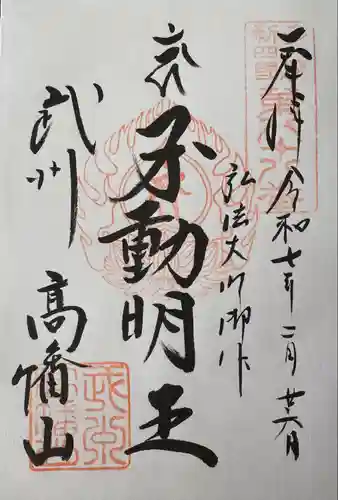 奉拝 令和七年二月廿六日
弘法大師御作
不動明王
武州
高幡山